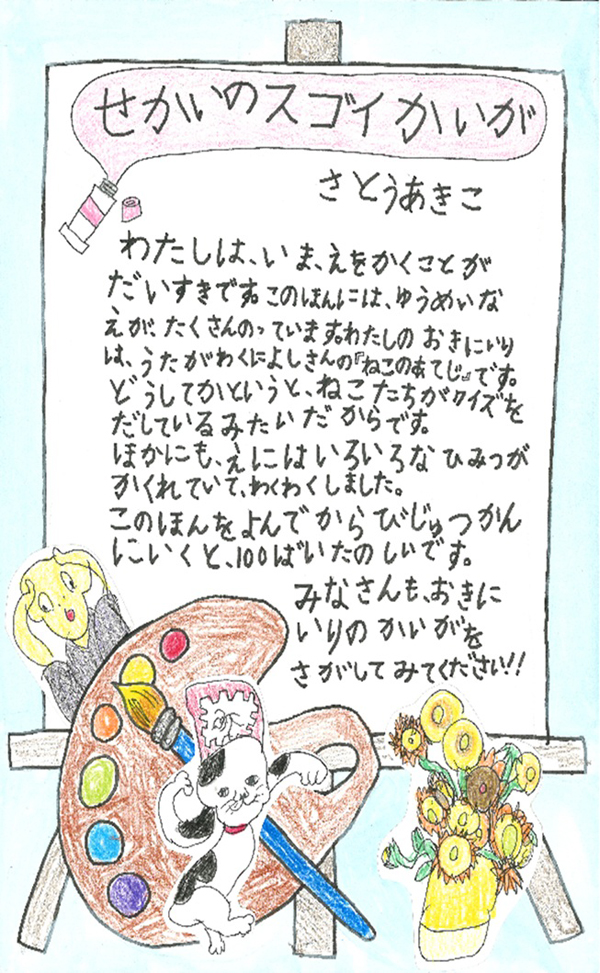 せかいのスゴイかいが
さとうあきこ
わたしは、いま、えをかくことが
だいすきです。このほんには、ゆうめいな
えが、たくさんのっています。わたしの おきにいり
は、うたがわくによしさんの『ねこのあてじ』です。
どうしてかというと、ねこたちがクイズを
だしているみたいだからです。
ほかにも、えにはいろいろなひみつが
かくれていて、わくわくしました。
このほんをよんでからびじゅつかん
にいくと、100ばいたのしいです。
みなさんも、おきに
いりのかいがを
さがしてみてください!!